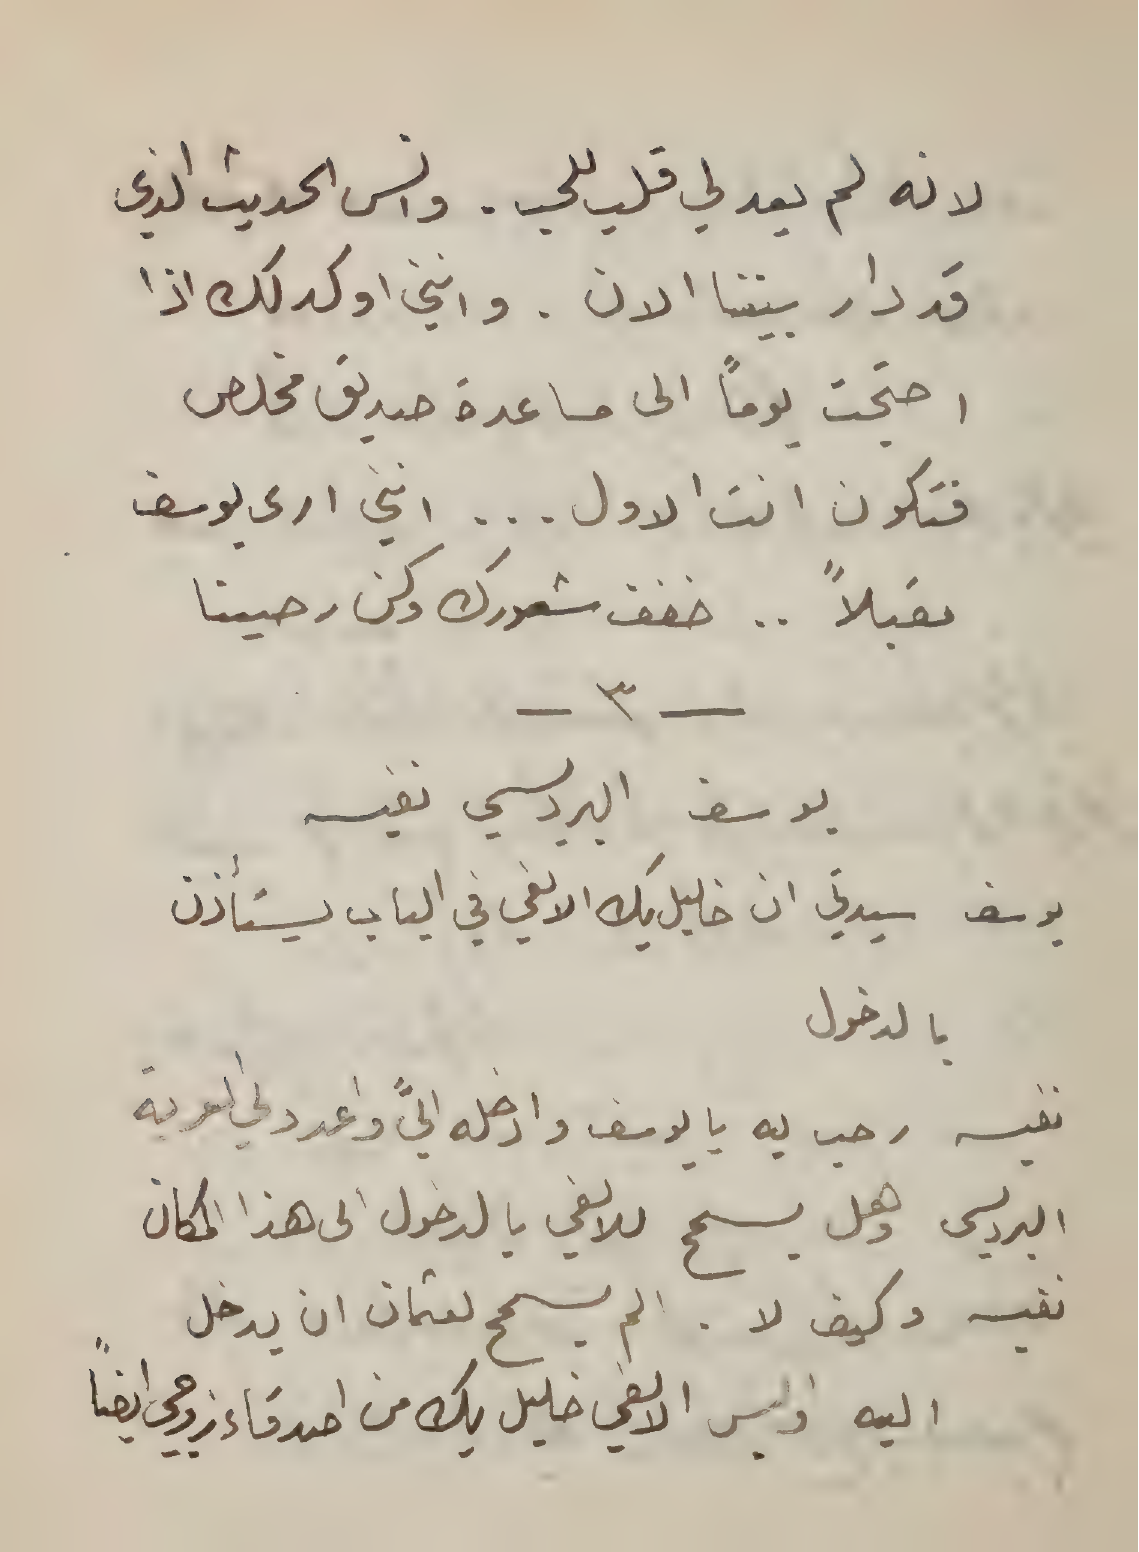 لانه لم يعد لي قلب للحب . وانس الحديث الذي
قد دار بيننا الان . وانني اوكد لك اذا
احتجت يوماً الى مساعدة صديق مخلص
فتكون انت الاول ... انني ارى يوسف
مقبلاً .. خفف شعورك وكن رصينا
— ٣ —
يوسف البرديسي نفيسه
يوسف سيدتي ان خليل بك الالفي في الباب يستأذن
بالدخول
نفيسه رحب به يا يوسف وادخله اليَّ واعدد لي العربة
البرديسي وهل يسمح للالفي بالدخول الى هذا المكان
نفيسه وكيف لا . الم يسمح لعثمان ان يدخل
اليه اوليس الالفي خليل بك من اصدقاء زوجي ايضاً